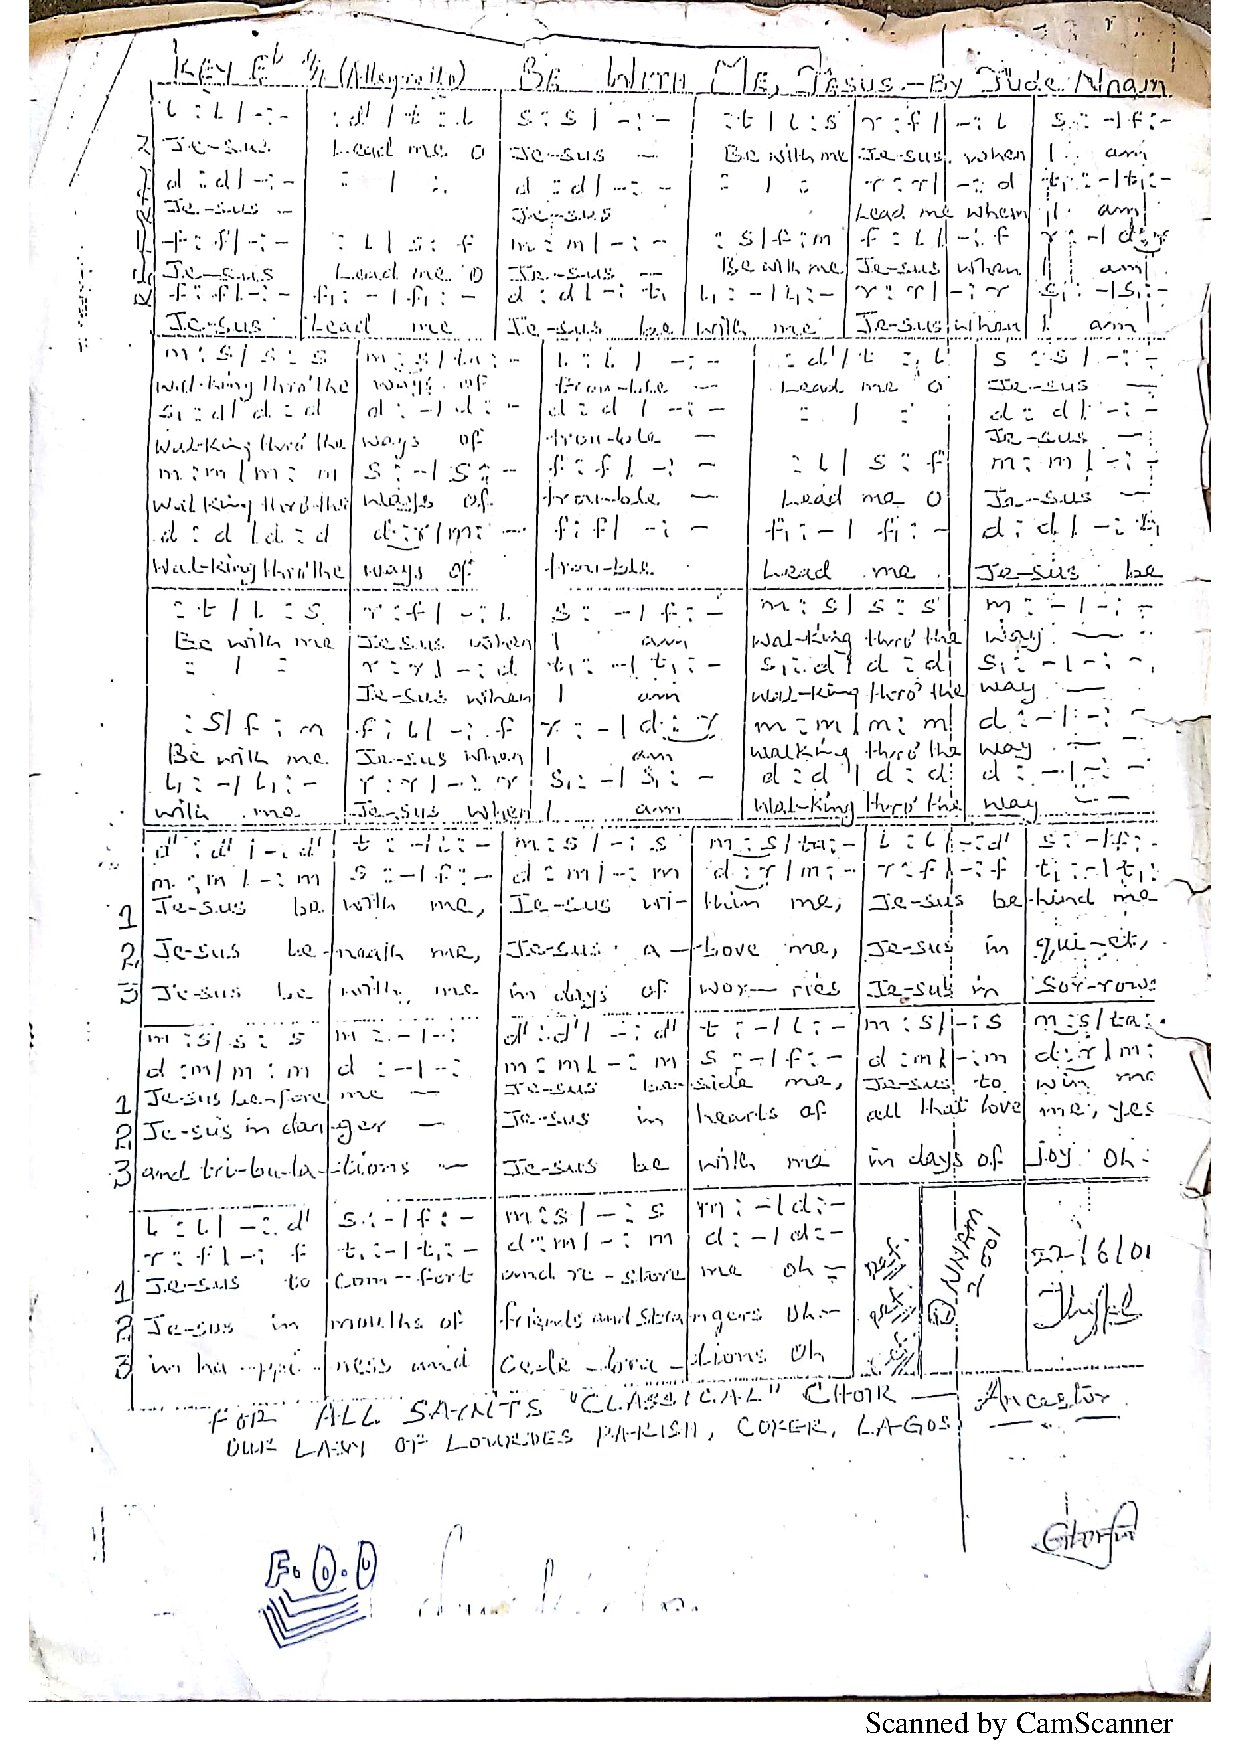 KEY Eb 4/4 (Allegretto) BE WITH ME, JESUS. - By Jude Nnam
REFRAIN
l : l / - : - | : d' / t : l | s : s / - : - | : t / l : s | r : f / - : l | s : - / f : -
Je-sus Lead me O Je-sus — Be with me Je-sus when I am
d : d / - : - | : / : | d : d / - : - | : / : | r : r / - : d | t₁ : - / t₁ : -
Je-sus - Je-sus Lead me when I am
f : f / - : - | : l / s : f | m : m / - : - | : s / f : m | f : l / - : f | r : - / d : r
Je-sus Lead me O Je-sus — Be with me Je-sus when I am
f : f / - : - | f₁ : - / f₁ : - | d : d / - : t₁ | l₁ : - / l₁ : - | r : r / - : r | s₁ : - / s₁ : -
Je-sus Lead me Je-sus be with me Je-sus when I am
m : s / s : s | m : s / ta : - | l : l / - : - | : d' / t : l | s : s / - : -
Wal-king thro' the ways of trou-ble — Lead me O Je-sus —
s₁ : d / d : d | d : - / d : - | d : d / - : - | : / : | d : d / - : -
Wal-king thro' the ways of trou-ble — Je-sus —
m : m / m : m | s : - / s : - | f : f / - : - | : l / s : f | m : m / - : -
Wal-king thro' the ways of trou-ble — Lead me O Je-sus —
d : d / d : d | d : r / m : - | f : f / - : - | f₁ : - / f₁ : - | d : d / - : t₁
Wal-king thro' the ways of trou-ble. Lead me. Je-sus be
: t / l : s | r : f / - : l | s : - / f : - | m : s / s : s | m : - / - : -
Be with me Je-sus when I am Wal-king thro' the way. —
: / : | r : r / - : d | t₁ : - / t₁ : - | s₁ : d / d : d | s₁ : - / - : -
Je-sus when I am Wal-king thro' the way —
: s / f : m | f : l / - : f | r : - / d : r | m : m / m : m | d : - / - : -
Be with me. Je-sus when I am Walking thro' the way —
l₁ : - / l₁ : - | r : r / - : r | s₁ : - / s₁ : - | d : d / d : d | d : - / - : -
with me Je-sus when I am Wal-king thro' the way —
d' : d' / - : d' | t : - / l : - | m : s / - : s | m : s / ta : - | l : l / - : d' | s : - / f : -
m : m / - : m | s : - / f : - | d : m / - : m | d : r / m : - | r : f / - : f | t₁ : - / t₁ :
1 Je-sus be with me, Je-sus wi-thin me, Je-sus be-hind me
2 Je-sus be-neath me, Je-sus a-bove me, Je-sus in qui-et,
3 Je-sus be with me in days of wor-ries Je-sus in Sor-rows
m : s / s : s | m : - / - : | d' : d' / - : d' | t : - / l : - | m : s / - : s | m : s / ta :
d : m / m : m | d : - / - : | m : m / - : m | s : - / f : - | d : m / - : m | d : r / m :
1 Je-sus be-fore me — Je-sus be-side me, Je-sus to win me
2 Je-sus in dan-ger — Je-sus in hearts of all that love me, yes
3 and tri-bu-la-tions — Je-sus be with me in days of Joy Oh
l : l / - : d' | s : - / f : - | m : s / - : s | m : - / d : -
r : f / - : f | t₁ : - / t₁ : - | d : m / - : m | d : - / d : -
1 Je-sus to com-fort and re-store me Oh —
2 Je-sus in mouths of friends and Strangers Oh —
3 in ha-ppi-ness and Cele-bra-tions Oh
© NNAM
2001
22/6/01
FOR ALL SAINTS "CLASSICAL" CHOIR — Ancestor
OUR LADY OF LOURDES PARISH, COKER, LAGOS
F.O.O
Scanned by CamScanner